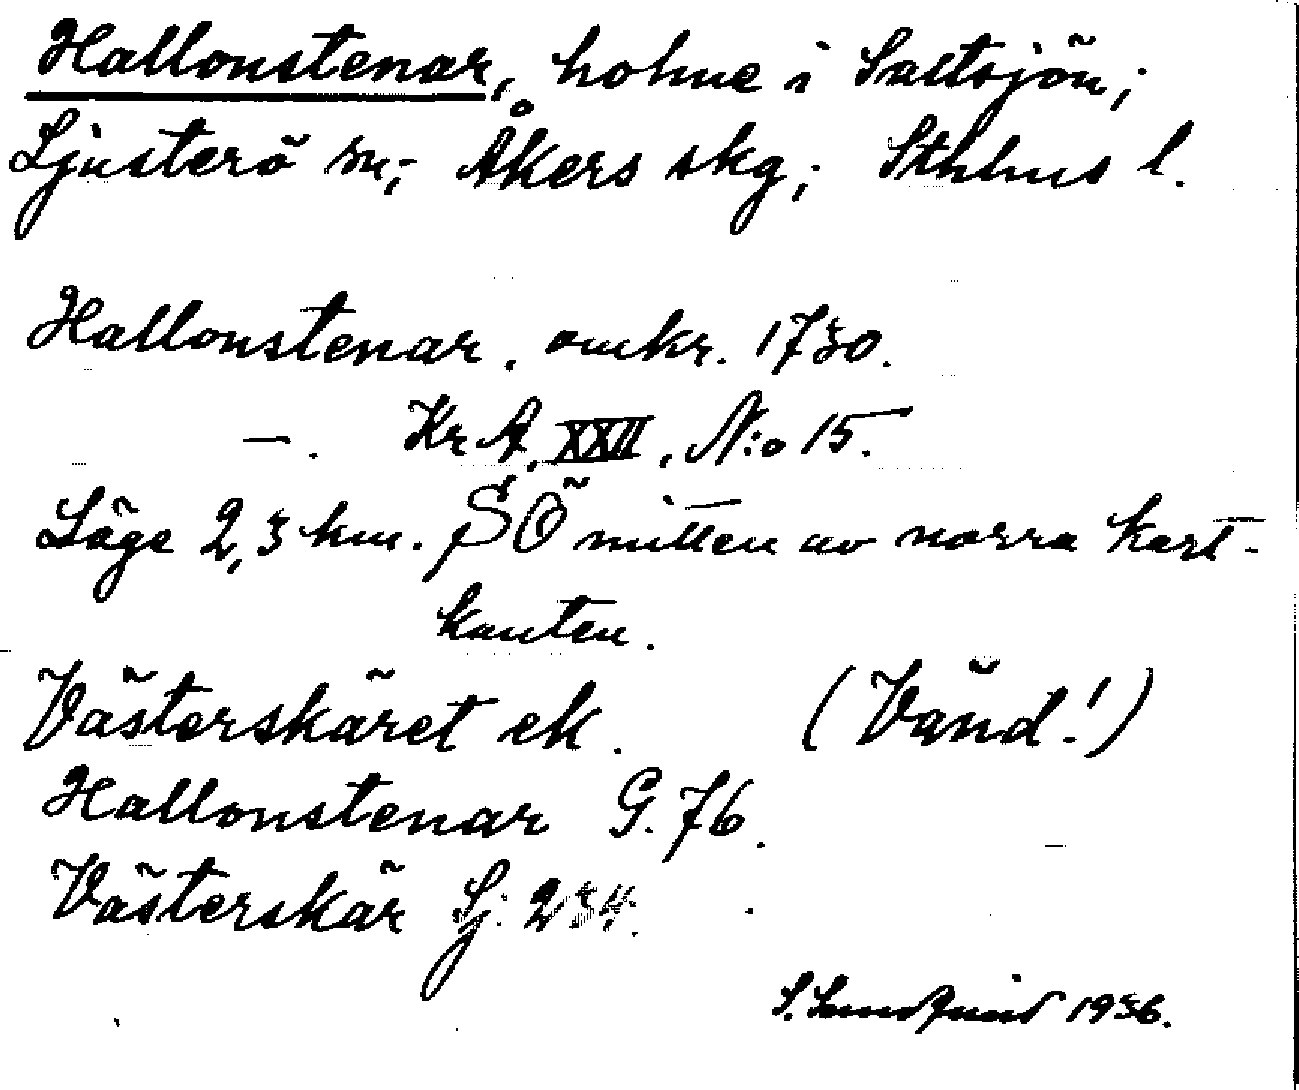 Hallonstenar, holme i Saltsjön;
Ljusterö sn; Åkers skg; Sthlms l.
Hallonstenar. omkr. 1730.
—. Kr A, XXII, N:o 15.
Läge 2,3 km. SÖ mitten av norra kart-
kanten.
Västerskäret ek. (Vänd!)
Hallonstenar G. 76.
Västerskär Lj. 234.
S. 1936.